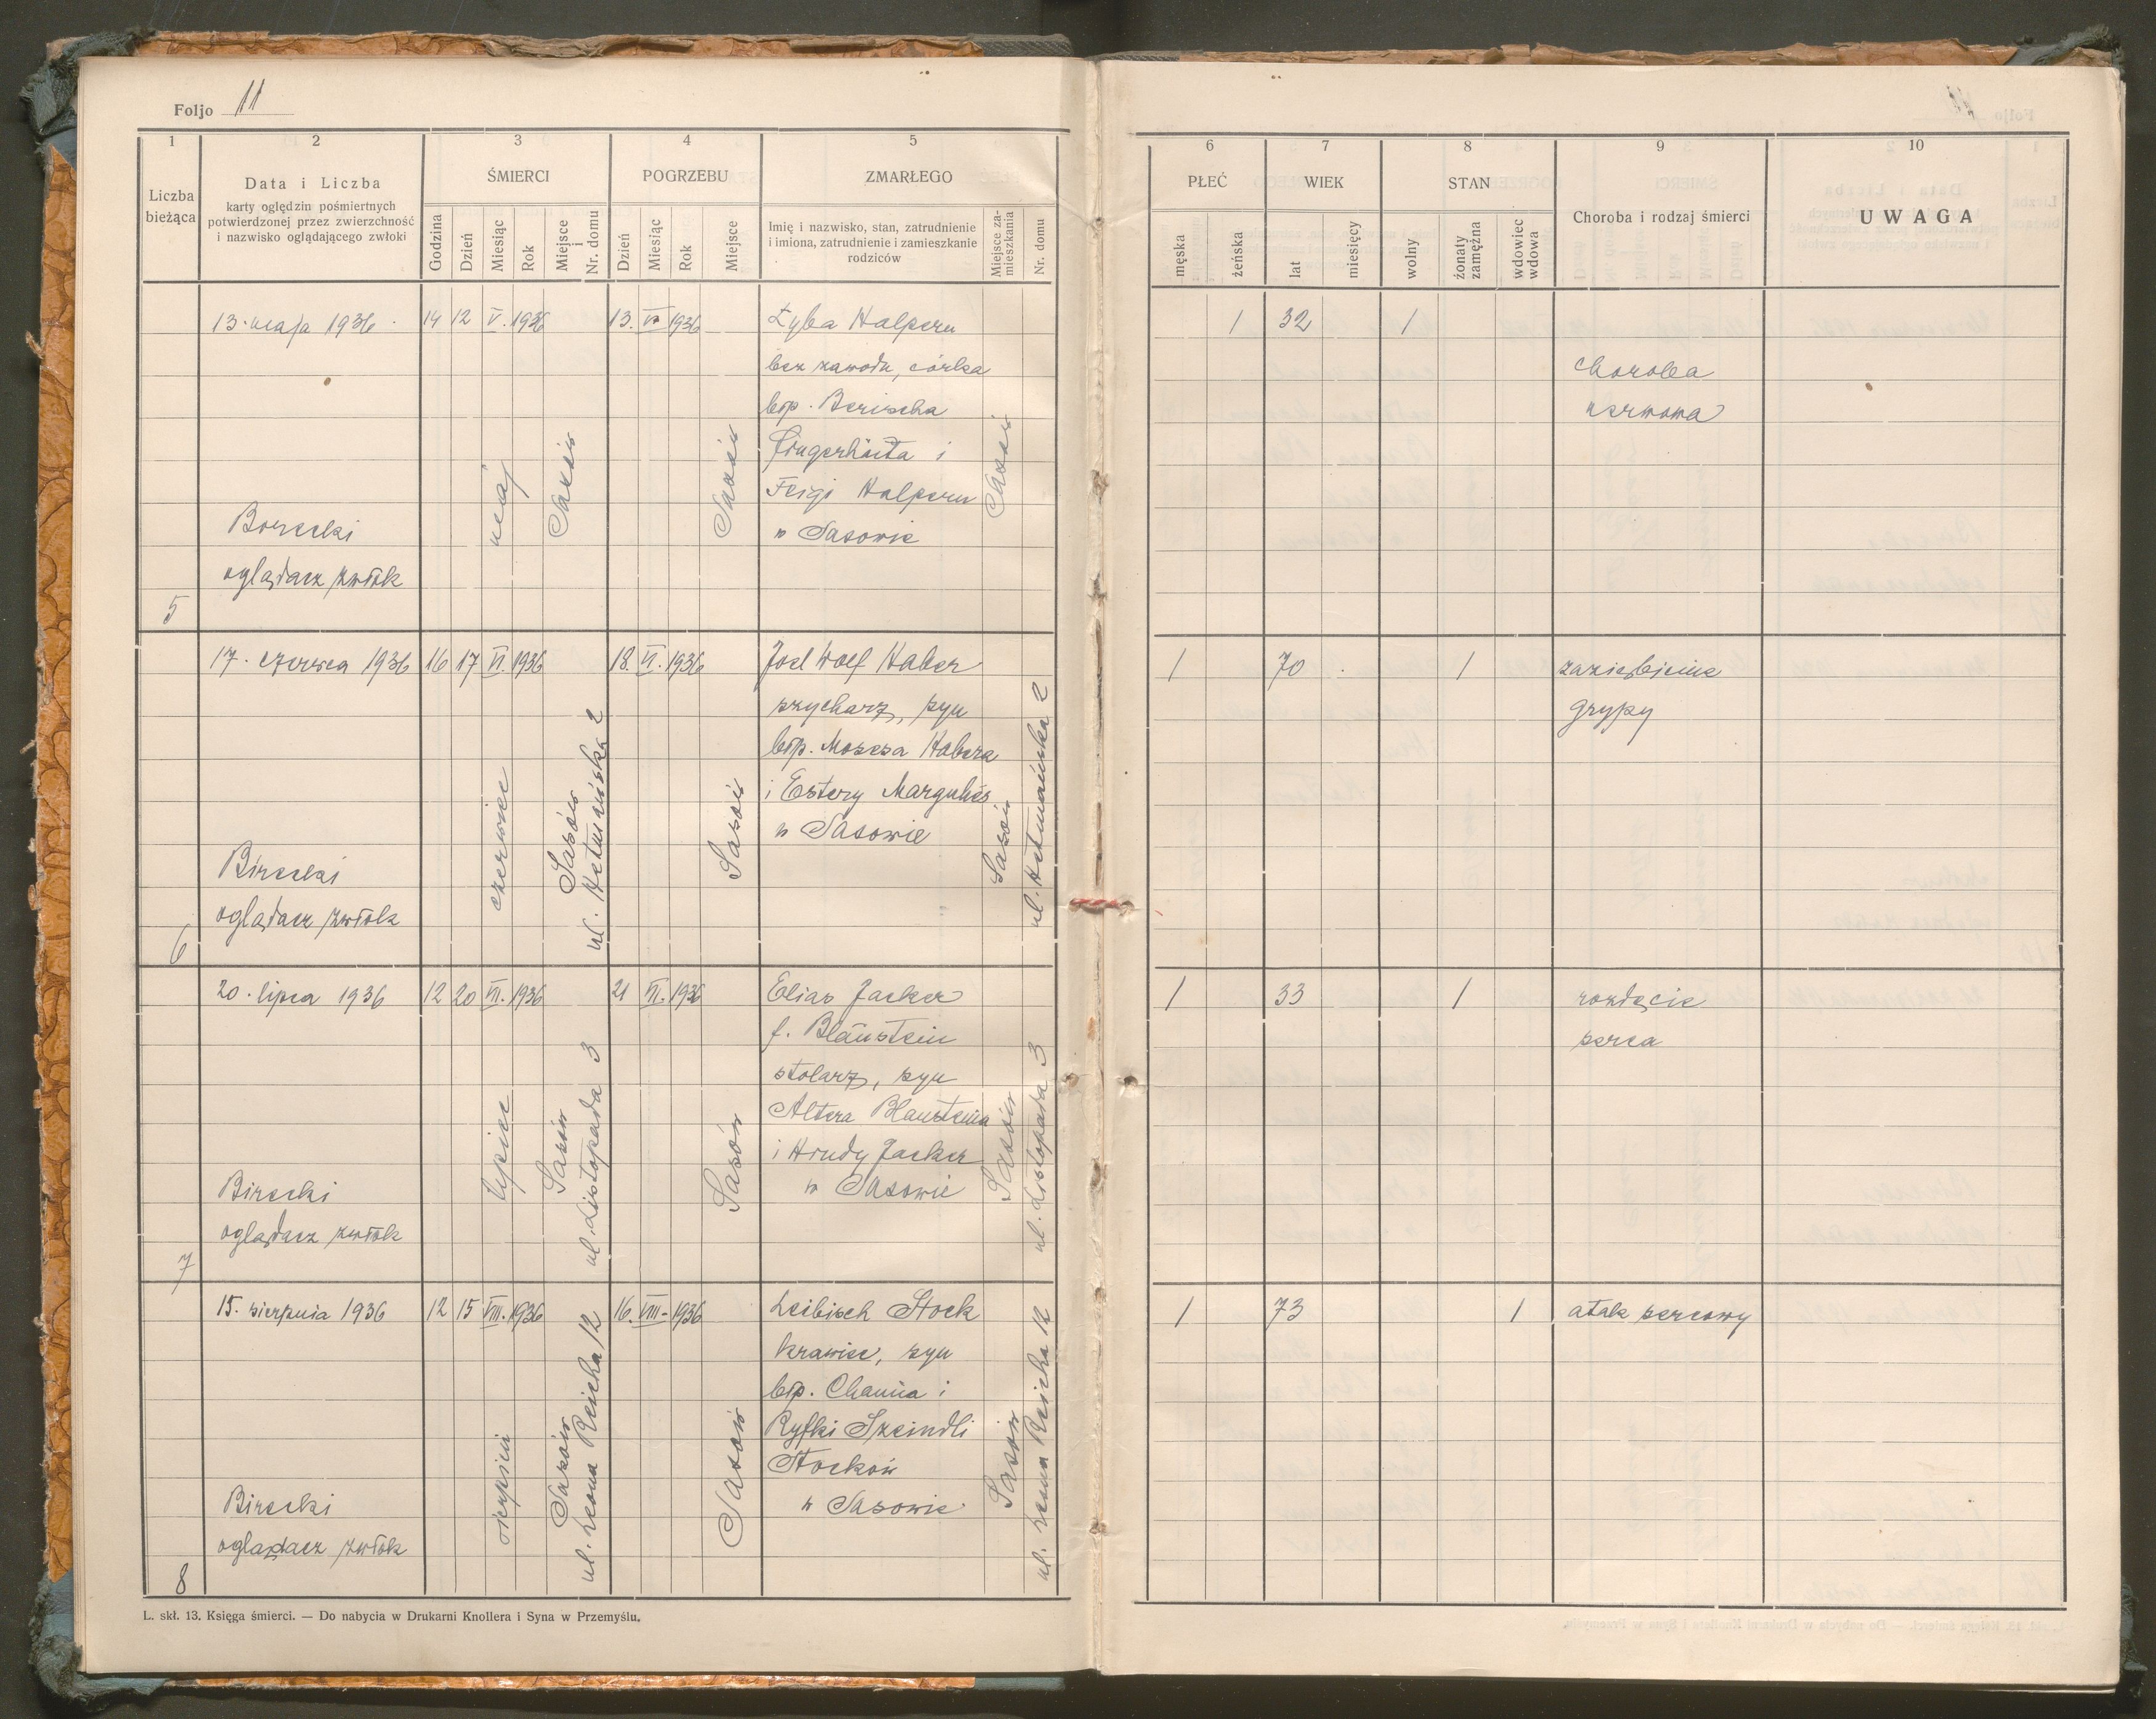 Foljo 11
1 2 3 4 5
Liczba bieżąca
Data i Liczba
karty oględzin pośmiertnych
potwierdzonej przez zwierzchność
i nazwisko oglądającego zwłoki
ŚMIERCI
Godzina Dzień Miesiąc Rok Miejsce i Nr. domu
POGRZEBU
Dzień Miesiąc Rok Miejsce
ZMARŁEGO
Imię i nazwisko, stan, zatrudnienie
i imiona, zatrudnienie i zamieszkanie
rodziców
Miejsce za-
mieszkania
Nr. domu
6 7 8 9 10
PŁEĆ
męska żeńska
WIEK
lat miesięcy
STAN
wolny
żonaty zamężna
wdowiec wdowa
Choroba i rodzaj śmierci
UWAGA
5
13. maja 1936
Borecki
oglądacz zwłok
14 12 V. 1936
maj
Sasów
13. 1936
Sasów
Łyba Halpern
bez zawodu, córka
błp. Berischa
Fingerhüta i
Feigi Halpern
w Sasowie
Sasów
1 32 1
choroba
nerwowa
6
17. czerwca 1936
Birecki
oglądacz zwłok
16 17 VI. 1936
czerwiec
Sasów
ul. Hetmańska 2
18. VI. 1936
Sasów
Joel Wolf Haber
szycharz, syn
błp. Mosesa Habera
i Estery Margulies
w Sasowie
Sasów
ul. Hetmańska 2
1 70 1
zaziębienie
grypy
7
20. lipca 1936
Birecki
oglądacz zwłok
12 20 VII. 1936
lipiec
Sasów
ul. Listopada 3
21 VII. 1936
Sasów
Elias Jacker
f. Blaustein
stolarz, syn
Altera Blausteina
i Hrudy Jacker
w Sasowie
Sasów
ul. Listopada 3
1 33 1
rozdęcie
serca
8
15. sierpnia 1936
Birecki
oglądacz zwłok
12 15 VIII. 1936
sierpień
Sasów
ul. Leona Reicha 12
16. VIII. 1936
Sasów
Leibisch Stock
krawiec, syn
błp. Chaima i
Ryfki Szeindli
Stocków
w Sasowie
Sasów
ul. Leona Reicha 12
1 73 1
atak sercowy
L. skł. 13. Księga śmierci. — Do nabycia w Drukarni Knollera i Syna w Przemyślu.